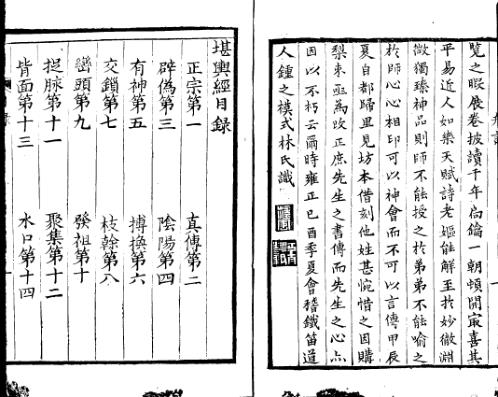 覽之暇展卷披讀千年扃鑰一朝頓開寔喜其
平易近人如樂天賦詩老嫗能解至於妙徹淵
微獨臻神品則師不能授之於弟弟不能喻之
於師心心相印可以神會而不可以言傳甲辰
夏自都歸里見坊本借刻他姓甚惋惜之因購
梨棗亟為改正庶先生之書傳而先生之心亦
因以不朽云爾時雍正己酉季夏會稽鐵笛道
人鍾之模式林氏識
堪輿經目錄
正宗第一
真傳第二
辟偽第三
陰陽第四
有神第五
摶換第六
交鎖第七
枝幹第八
巒頭第九
發祖第十
捉脉第十一
聚集第十二
背面第十三
水口第十四